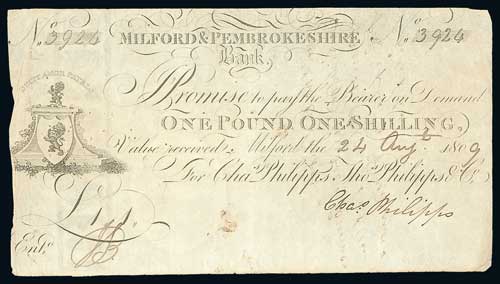 No. 3924 No. 3924
MILFORD & PEMBROKESHIRE
Bank,
I Promise to pay the Bearer on Demand
ONE POUND ONE SHILLING,
Value received, Milford the 24 Augt. 1809
For Chas. Philipps, Thos. Philipps & Co.
Chas. Philipps
Entd.